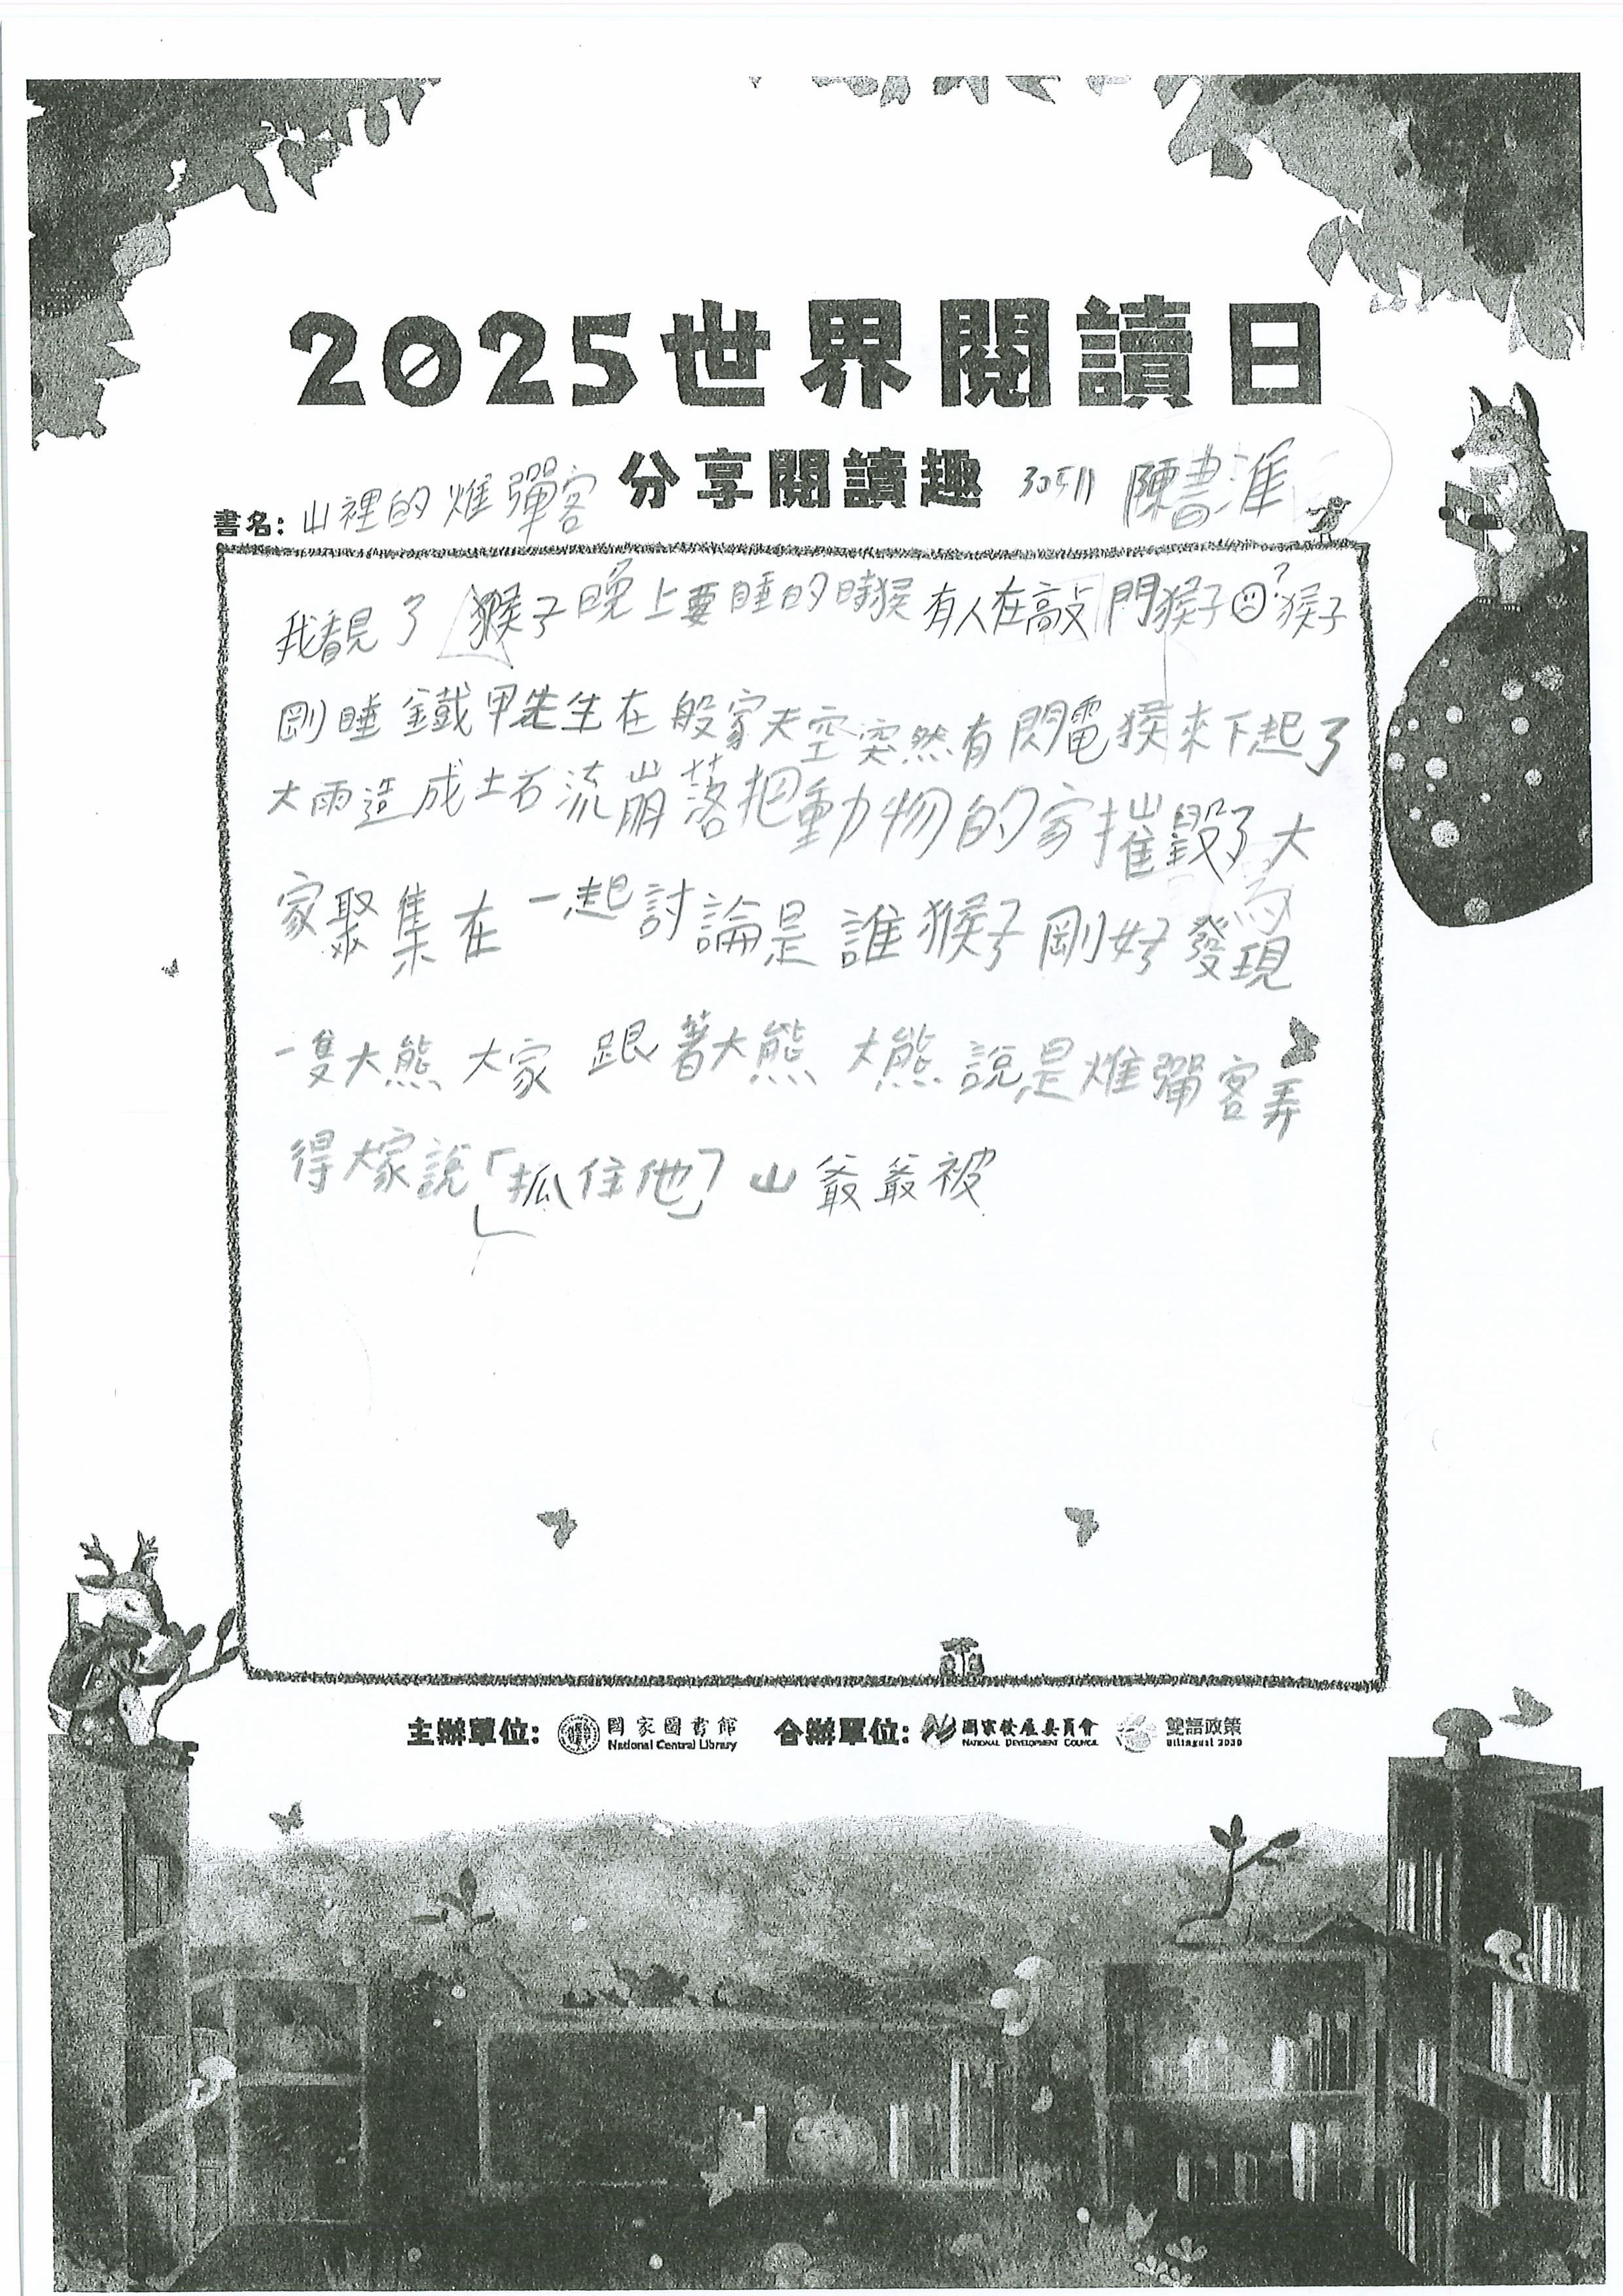 2025世界閱讀日
分享閱讀趣
30511 陳書淮
書名: 山裡的炸彈客
我看見了猴子晚上要睡的時猴有人在敲門猴子?猴子
剛睡鐵甲先生在般家天空突然有閃電猴來下起了
大雨造成土石流崩落把動物的家摧毀了大
家聚集在一起討論是誰猴子剛好發現
一隻大熊大家跟著大熊 大熊說是炸彈客弄
得大家說「抓住他」山爺爺被
主辦單位: 國家圖書館 National Central Library 合辦單位: 國家發展委員會 NATIONAL DEVELOPMENT COUNCIL 雙語政策 Bilingual 2030